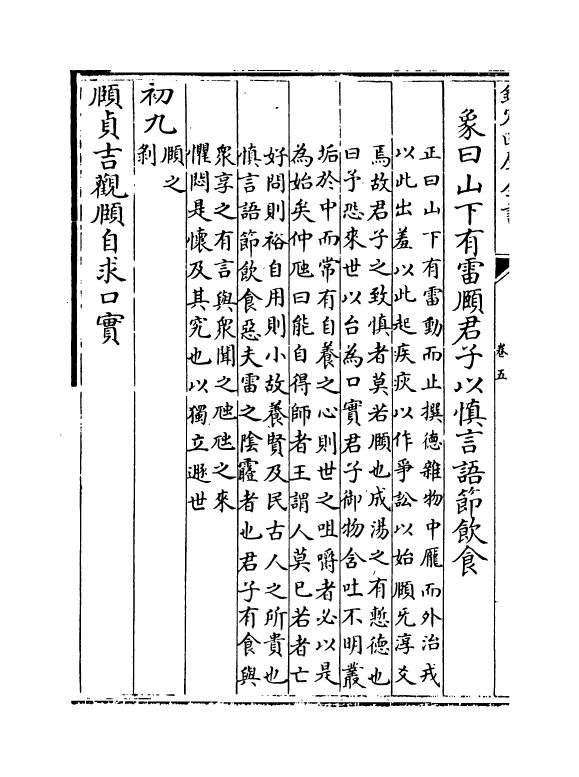 卷五
象曰山下有雷頤君子以慎言語節飲食
正曰山下有雷動而止撰徳雜物中厖而外治戎
以此出羞以此起疾疢以作爭訟以始頤旡淳爻
焉故君子之致慎者莫若頤也成湯之有慙徳也
曰予恐來世以台為口實君子御物含吐不明叢
垢於中而常有自養之心則世之咀嚼者必以是
為始矣仲虺曰能自得師者王謂人莫已若者亡
好問則裕自用則小故養賢及民古人之所貴也
慎言語節飲食惡夫雷之陰霾者也君子有食與
衆享之有言與衆聞之虺虺之來
懼悶是懷及其究也以獨立遯世
初九頤之
剝
頤貞吉觀頤自求口實